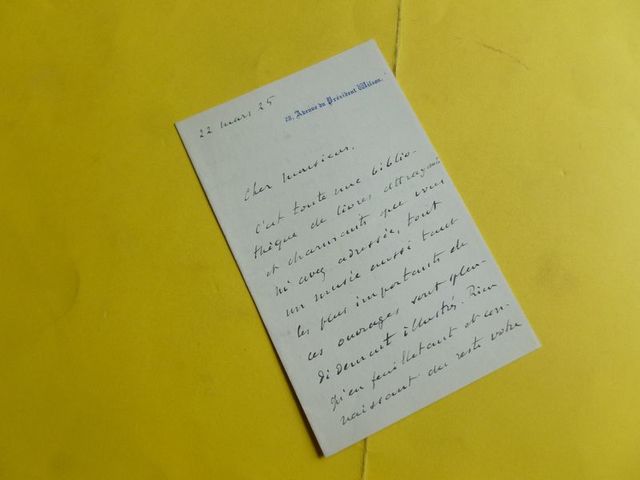 22 mars 25
Avenue du Président Wilson.
Cher Monsieur,
C'est toute une biblio-
thèque de livres attrayants
et charmants que vous
m'avez adressée, tout
un musée aussi tant
les plus importants de
ces ouvrages sont splen-
didement illustrés. Rien
qu'en feuilletant et con-
naissant du reste votre